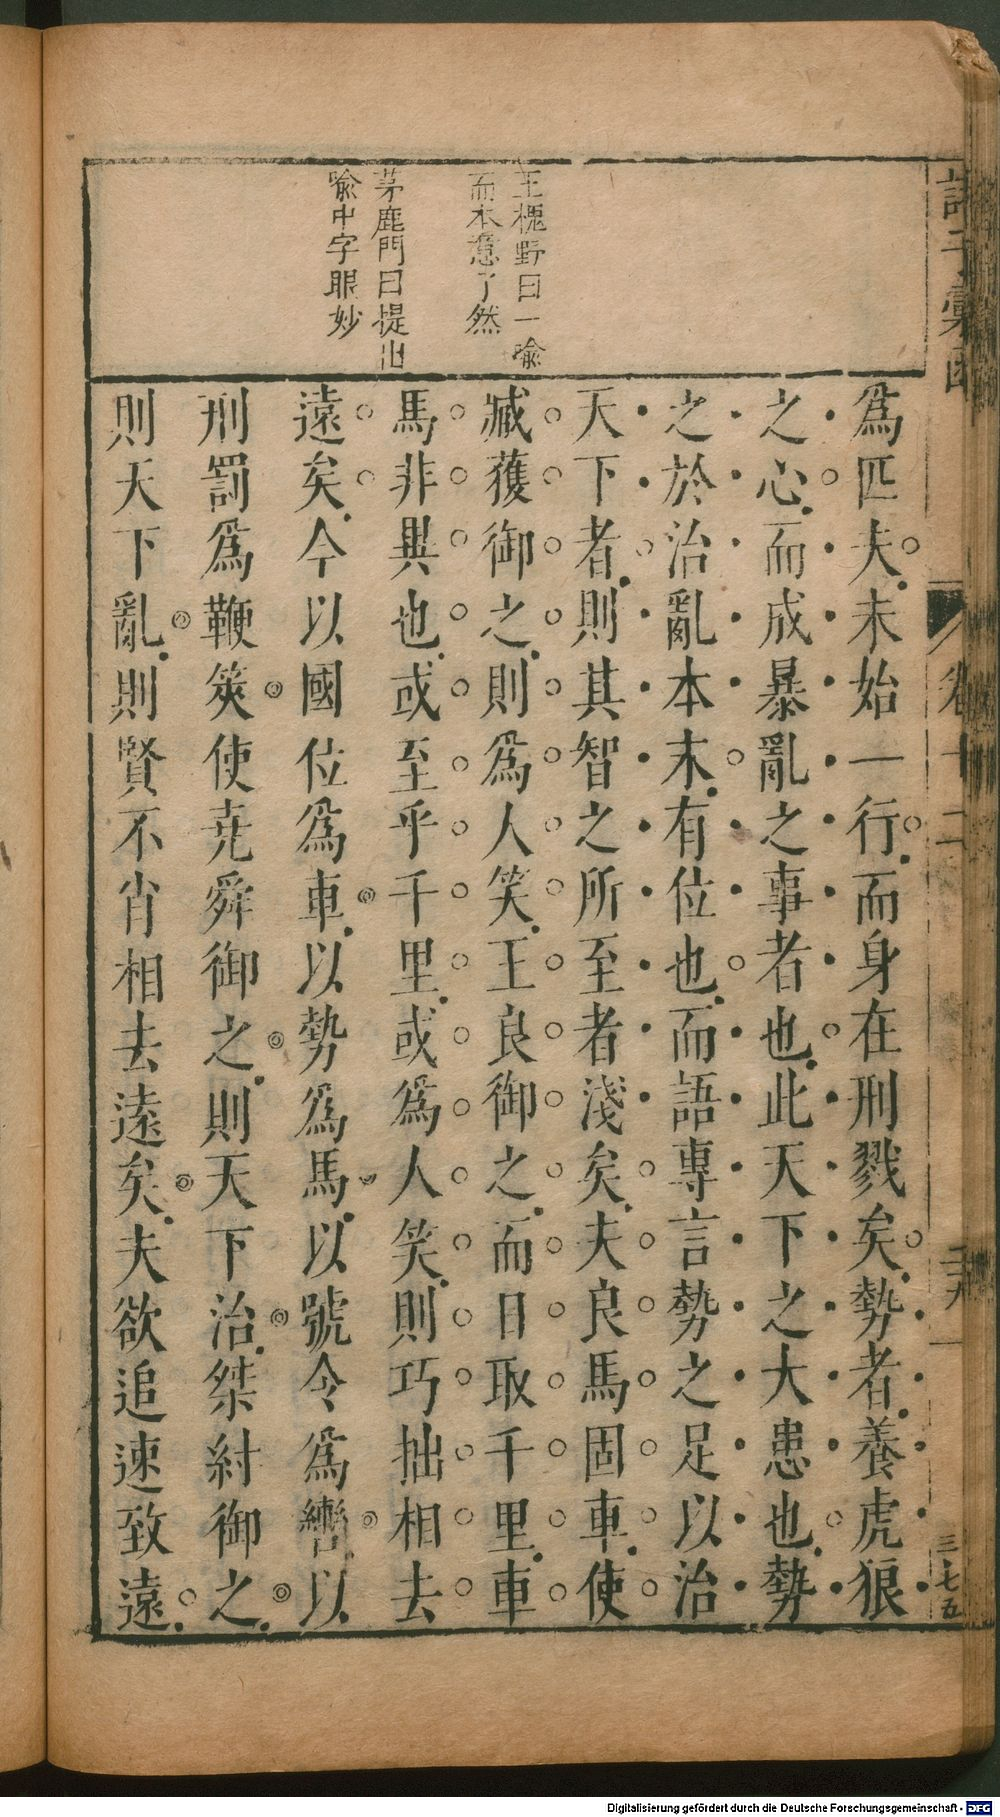 王槐野曰一喻
而本意了然
茅鹿門曰提出
喻中字眼妙
爲匹夫未始一行而身在刑戮矣勢者養虎狼
之心而成暴亂之事者也此天下之大患也勢
之於治亂本末有位也而語專言勢之足以治
天下者則其智之所至者淺矣夫良馬固車使
臧獲御之則爲人笑王良御之而日取千里車
馬非異也或至乎千里或爲人笑則巧拙相去
遠矣今以國位爲車以勢爲馬以號令爲轡以
刑罰爲鞭筴使堯舜御之則天下治桀紂御之
則天下亂則賢不肖相去遠矣夫欲追速致遠
卷十二
三七五
Digitalisierung gefördert durch die Deutsche Forschungsgemeinschaft - DFG